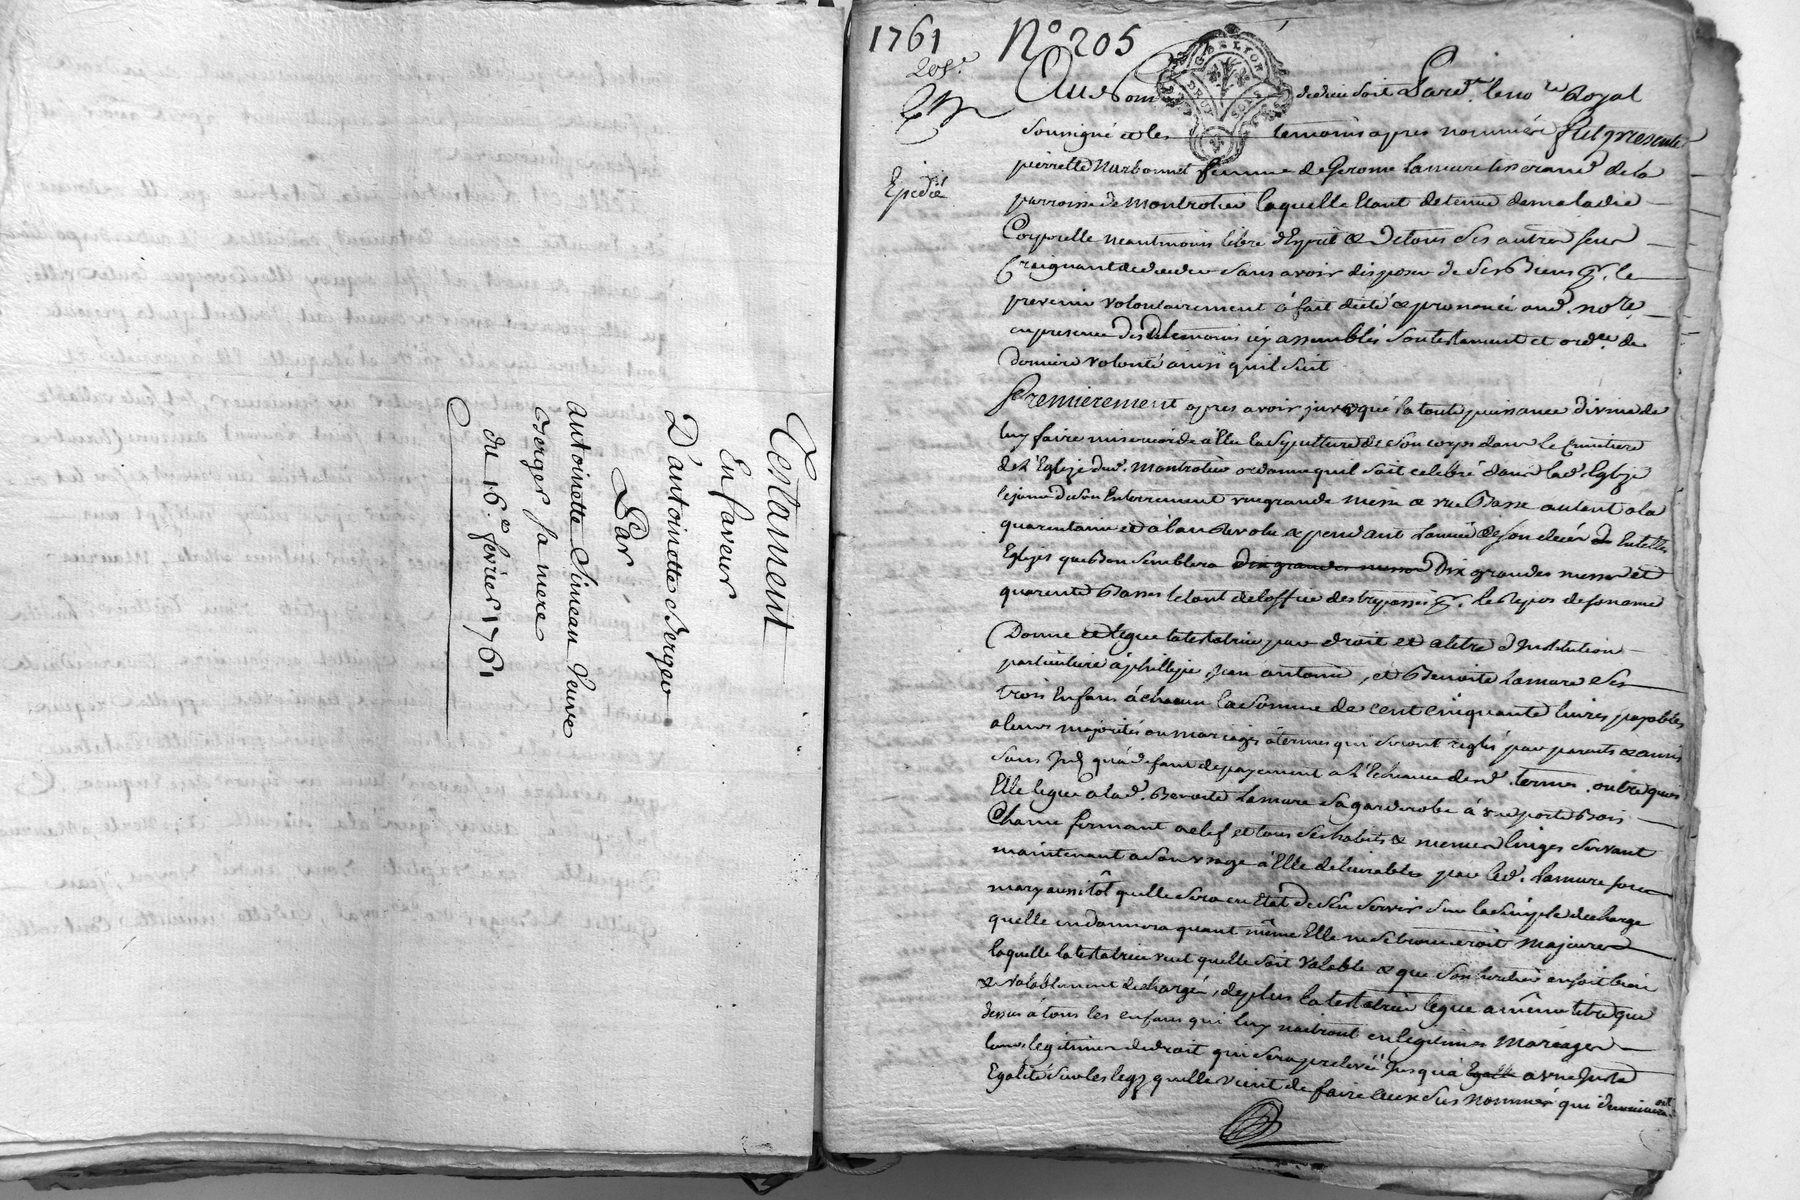 Testament
En faveur
D'antoinette Berger
Par
Antoinette Simean Veuve
Berger sa mere
du 16.e fevrier 1761
1761 No 205
205.e
Expedié
G DE LION
DEUX SOLS
Au Nom de dieu soit Pard.t le no.re Royal
soussigné et les temoins apres nommés fut presente
pierrette Narbonnet femme de Jerome Lamure tisserand de la
parroisse de Montrotier laquelle Etant detenue de maladie
Corporelle neantmoins libre d'Esprit & de tous ses autres sens
Craignant de deceder sans avoir disposer de ses Biens p.r le
prevenir volontairement á fait dicté & prononcé aud. no.re
en presence desd. temoins icy assemblés son testament et ord.ce de
derniere volonté ainsi quil suit
Premierement apres avoir invoqué la toute puissance divine de
luy faire misericorde á Elu la sepulture de son corps dans le Cimetiere
de l'Eglize dud. Montrotier ordonne quil soit celebré dans lad. Eglize
le jour de son Enterrement vne grande messe & vne Basse autant a la
quarantaine et á l'an Revolu & pendant l'année de son decés En telles
Eglizes que Bon semblera dix grandes messes Dix grandes messes et
quarente Basses le tout de l'office des trepassés p.r le Repos de son ame
Donne et legue la testatrice par droit et a titre d'Institution
particuliere á phillipe, Jean antoine, et Benoite Lamure ses
trois Enfans á chacun la somme de cent cinquante livres payables
a leurs majorités ou mariages á termes qui seront reglés par parents & amis
sans Int. qu'á defaut de payement a l'Echeance desd. termes. outre quoi
Elle legue a lad. Benoite Lamure sa garderobe á vne porte Bois
Chane fermant a clef et tous ses habits & menus linges servant
maintenant a son vsage á Elle delivrables par led. Lamure son
mary aussitôt quelle sera en Etat de s'en servir sur la simple decharge
quelle en donnera quant même Elle ne se trouveroit Majeure
laquelle la testatrice veut quelle soit valable & que son heritier en soit bien
& valablement dechargé, de plus la testatrice legue a même titre que
dessus á tous les enfans qui luy naitront en legitimes Mariages
leurs legitimes de droit qui sera prelevée Jusqu'á Egalle a vne Juste
Egalité sur les legs quelle vient de faire aux sus nommés qui diminueront